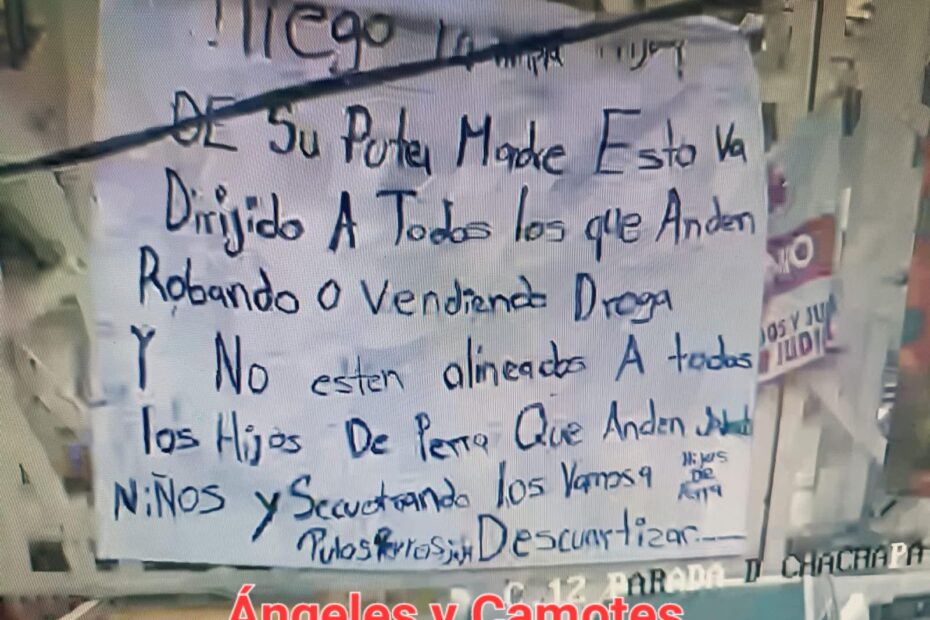 ¡llego la
DE Su Puta Madre Esto Va
Dirijido A Todos los que Anden
Robando o Vendiendo Droga
Y No esten alineados A todos
los Hijos De Perra Que Anden
NiÑOS y Secuestrando los Vamos a Hijos De Perra
Putos Perros Descuartizar
MO
OS Y JU
JUDI
C.12 PARADA D CHACHAPA
Ángeles y Camotes